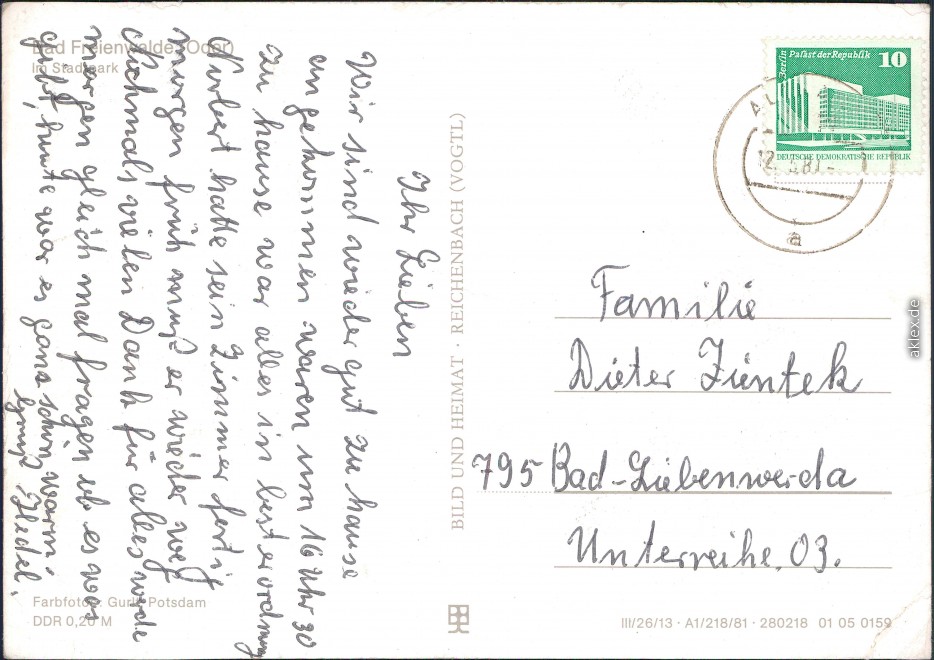 Bad Freienwalde (Oder)
Im Stadtpark
Ihr Lieben
Wir sind wieder gut zu hause
angekommen waren um 16 Uhr 30
zu hause war alles in bester ordnung
Norbert hatte sein Zimmer fertig
morgen früh muß er wieder weg
nochmals vielen Dank für alles werde
morgen gleich mal fragen ob es was
gibt, heute war es ganz schön warm.
Gruß Hedel.
Farbfoto: Gurlt, Potsdam
DDR 0,20 M
BILD UND HEIMAT · REICHENBACH (VOGTL)
Berlin Palast der Republik 10
DEUTSCHE DEMOKRATISCHE REPUBLIK
a
Familie
Dieter Zientek
795 Bad-Liebenwerda
Unterreihe. 03.
III/26/13 · A1/218/81 · 280218 01 05 0159
aklex.de